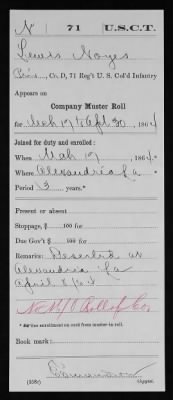 N 71 U.S.C.T.
Lewis Noyes
Co. D, 71 Reg't U. S. Col'd Infantry
Appears on
Company Muster Roll
for Mch 17 to Apl 30, 1864
Joined for duty and enrolled:
When Mch 17, 1864
Where Alexandria La
Period 3 years.*
Present or absent
Stoppage, $ 100 for
Due Gov't $ 100 for
Remarks: Deserted at
Alexandria La
April 8/64
* See enrollment on card from muster-in roll.
Book mark:
(358c) Copyist.